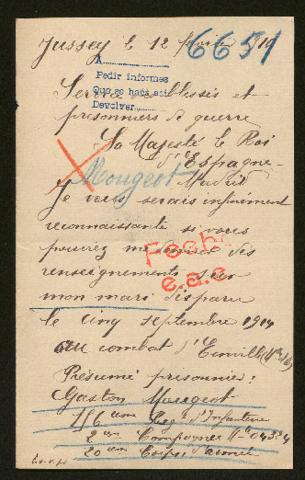 Jussey le 12 février 1919
6651
A
Pedir informes
Que se hace así
Devolver
Service des blessés et
prisonniers de guerre
Sa Majesté le Roi
d'Espagne
Madrid
Mougeot
Je vous serais infiniment
reconnaissante si vous
pouviez me donner des
renseignements sur
mon mari disparu
le cinq septembre 1914
au combat d'Einville
Présumé prisonnier:
Gaston Mougeot
156 eme Reg d'Infanterie
2 eme Compagnie N° 04324
20 eme Corps d'armée
Fech.
e.a.e